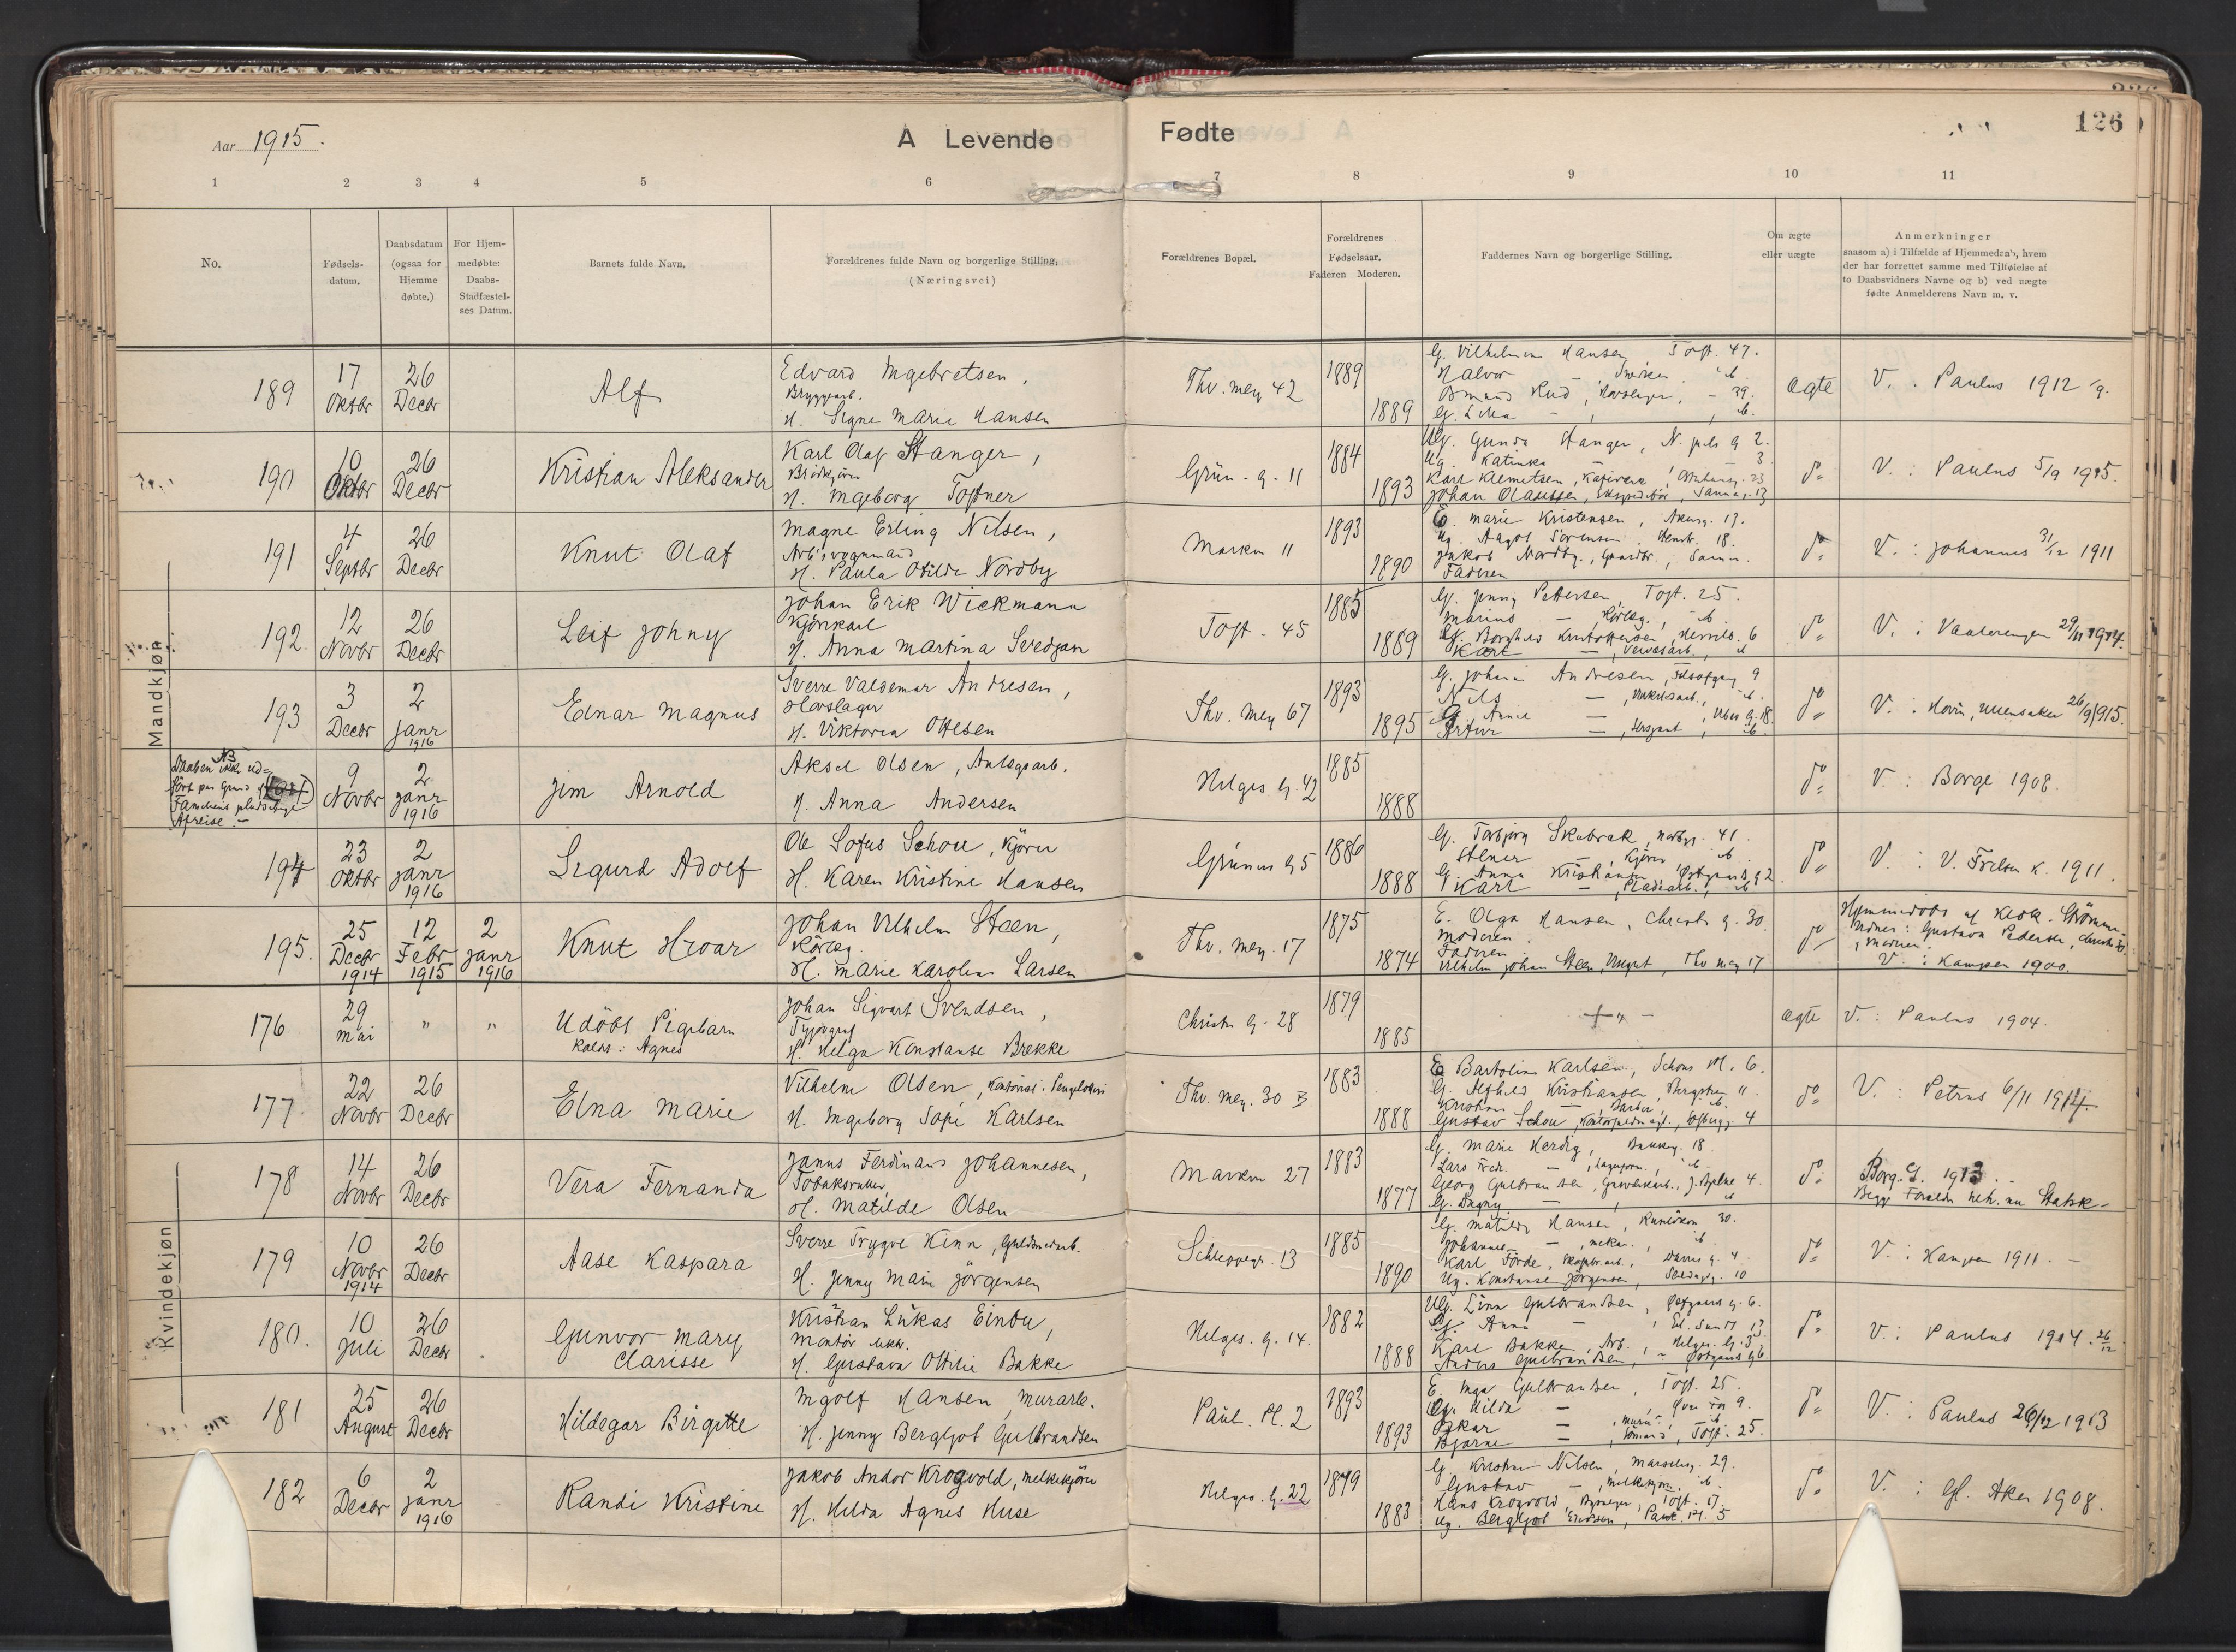 126
Aar 1915.
A Levende Fødte
1 2 3 4 5 6 7 8 9 10 11
No.
Fødsels-
datum.
Daabsdatum
(ogsaa for
Hjemme
døbte.)
For Hjem-
medøbte:
Daabs-
Stadfæstel-
ses Datum.
Barnets fulde Navn.
Forældrenes fulde Navn og borgerlige Stilling.
(Næringsvei)
Forældrenes Bopæl.
Forældrenes
Fødselsaar.
Faderen Moderen.
Faddernes Navn og borgerlige Stilling.
Om ægte
eller uægte
Anmerkninger
saasom a) i Tilfælde af Hjemmedaab, hvem
der har forrettet samme med Tilføielse af
to Daabsvidners Navne og b) ved uægte
fødte Anmelderens Navn m. v.
Mandkjøn
189
17
Oktbr
26
Decbr
Alf
Edvard Ingebretsen,
Bryggearb.
H. Signe Marie Hansen
Thv. mey 42
1889
1889
G. Vilhelmine Hansen, Toft. 47.
Halvor
ægte
V. : Paulus 1912
190
10
Oktbr
26
Decbr
Kristian Aleksander
Karl Olaf Stanger,
H. Ingeborg Toftner
Grün. g. 11
1884
1893
Ug. Gunda Stanger, N.
Ug. Katinka — 3
Karl Klemetsen,
Johan Olaussen, Ekspeditør, Sannerg. 13
do
V. : Paulus 5/9 1915.
191
4
Septbr
26
Decbr
Knut Olaf
Magne Erling Nilsen,
Arb., vognmand
H. Paula Otilde Nordby
Marken 11
1893
1890
E. Marie Kristensen, Akersg. 17.
Ug. Aagot Sørensen, 18.
Jakob Nordby, Gaardbr.,
Faderen
do
V. : Johannes 31/12 1911
192.
12
Novbr
26
Decbr
Leif Johny
Johan Erik Wickmann
Kjørekarl
H. Anna Martina Svedjan
Toft. 45
1885
1889
G. Jenny Pettersen, Toft. 25.
Marius —
G. Borghild Kristoffersen, 6
Karl —
do
V. : Vaalerengen 29/11 1914.
193
3
Decbr
2
Janr
1916
Einar Magnus
Sverre Valdemar Andresen,
Hovslager
H. Viktoria Ottesen
Thv. mey 67
1893
1895
G. Johanna Andresen, 9
Nils —
G. Annie —
Artur — , Sersjant,
do
V. : Hovin, Ullensaker 26/9 1915.
NB
Daaben ikke ud-
ført paa Grund af
Familiens pludselige
Afreise. —
9
Novbr
2
Janr
1916
Jim Arnold
Aksel Olsen, Anlægsarb.
H. Anna Andersen
Helges g. 42
1885
1888
do
V. : Borge 1908.
194
23
Oktbr
2
Janr
1916
Sigurd Adolf
Ole Sofus Schou, Kjører
H. Karen Kristine Hansen
Grüners g 5
1886
1888
G. Torbjørg Skabrak, 41.
Stener — Kjører
G. Anna Kristiansen, Østgaards g 2
Karl —
do
V. : V. Frelser k. 1911.
195.
25
Decbr
1914
12
Febr
1915
2
Janr
1916
Knut Hroar
Johan Vilhelm Steen,
H. Marie Karoline Larsen
Thv. mey. 17
1875
1874
E. Olga Hansen, Christ. g. 30.
Moderen
Faderen
Vilhelm Johan Steen, Thv mey 17
do
Hjemmedøbt af
Vidner: Gustava Pedersen,
, Moderen.
V. : Kampen 1900.
Kvindekjøn
176
29
Mai
" "
Udöbt Pigebarn
Kaldt: Agnes
Johan Sigvart Svendsen,
Typograf
H. Helga Konstanse Brekke
Christ. g. 28
1879
1885
ægte
V. : Paulus 1904.
177.
22
Novbr
26
Decbr
Elna Marie
Vilhelm Olsen,
H. Ingeborg Sofie Karlsen
Thv. mey. 30 B
1883
1888
E. Bartoline Karlsen, Schous Pl. 6.
G. Alfhild Kristiansen, 11.
Kristian —
Gustav Schou, 4
do
V. : Petrus 6/11 1914
178
14
Novbr
26
Decbr
Vera Fernanda
Janus Ferdinand Johannesen,
H. Matilde Olsen
Marken 27
1883
1877
G. Marie Herdig, 18.
Lars Fredr. —
Georg Gulbrandsen, 4.
G. Dagny —
do
Borg. G. 1913.
179
10
Novbr
1914
26
Decbr
Aase Kaspara
Sverre Trygve Kinn, Guldsmedarb.
H. Jenny Marie Jörgensen
Schleppegr. 13
1885
1890
G. Matilde Hansen, 30.
Johannes —
Karl Förde, 4.
Ug. Konstanse Jörgensen, 10
do
V. : Kampen 1911. —
180.
10
Juli
26
Decbr
Gunvor Mary
Clarisse
Kristian Lukas Einbu,
Montör
H. Gustava Ottilie Bakke
Helges. g. 14.
1882
1888
Ug. Lina Gulbrandsen, g. 6.
G. Anna — , 13
Karl Bakke, Arb., Helges. g. 3
Anders Gulbrandsen,
do
V. : Paulus 1914. 26/12
181
25
August
26
Decbr
Hildegar Birgitte
Ingolf Hansen, Murarb.
H. Jenny Bergljot Gulbrandsen
Paul. Pl. 2
1893
1893
E. Inga Gulbrandsen, Toft. 25.
G. Hilda — 9.
Oskar —
Bjarne — , Toft. 25.
do
V. : Paulus 26/12 1913
182
6
Decbr
2
Janr
1916
Randi Kristine
Jakob Andor Krogvold, Melkekjører
H. Hilda Agnes Huse
Helges. g. 22
1879
1883
G. Kristine Nilsen, 29.
Gustav —
Hans Krogvold, Toft. 17.
Ug. Bergljot Paul. Pl. 5
do
V. : Gl. Aker 1908.